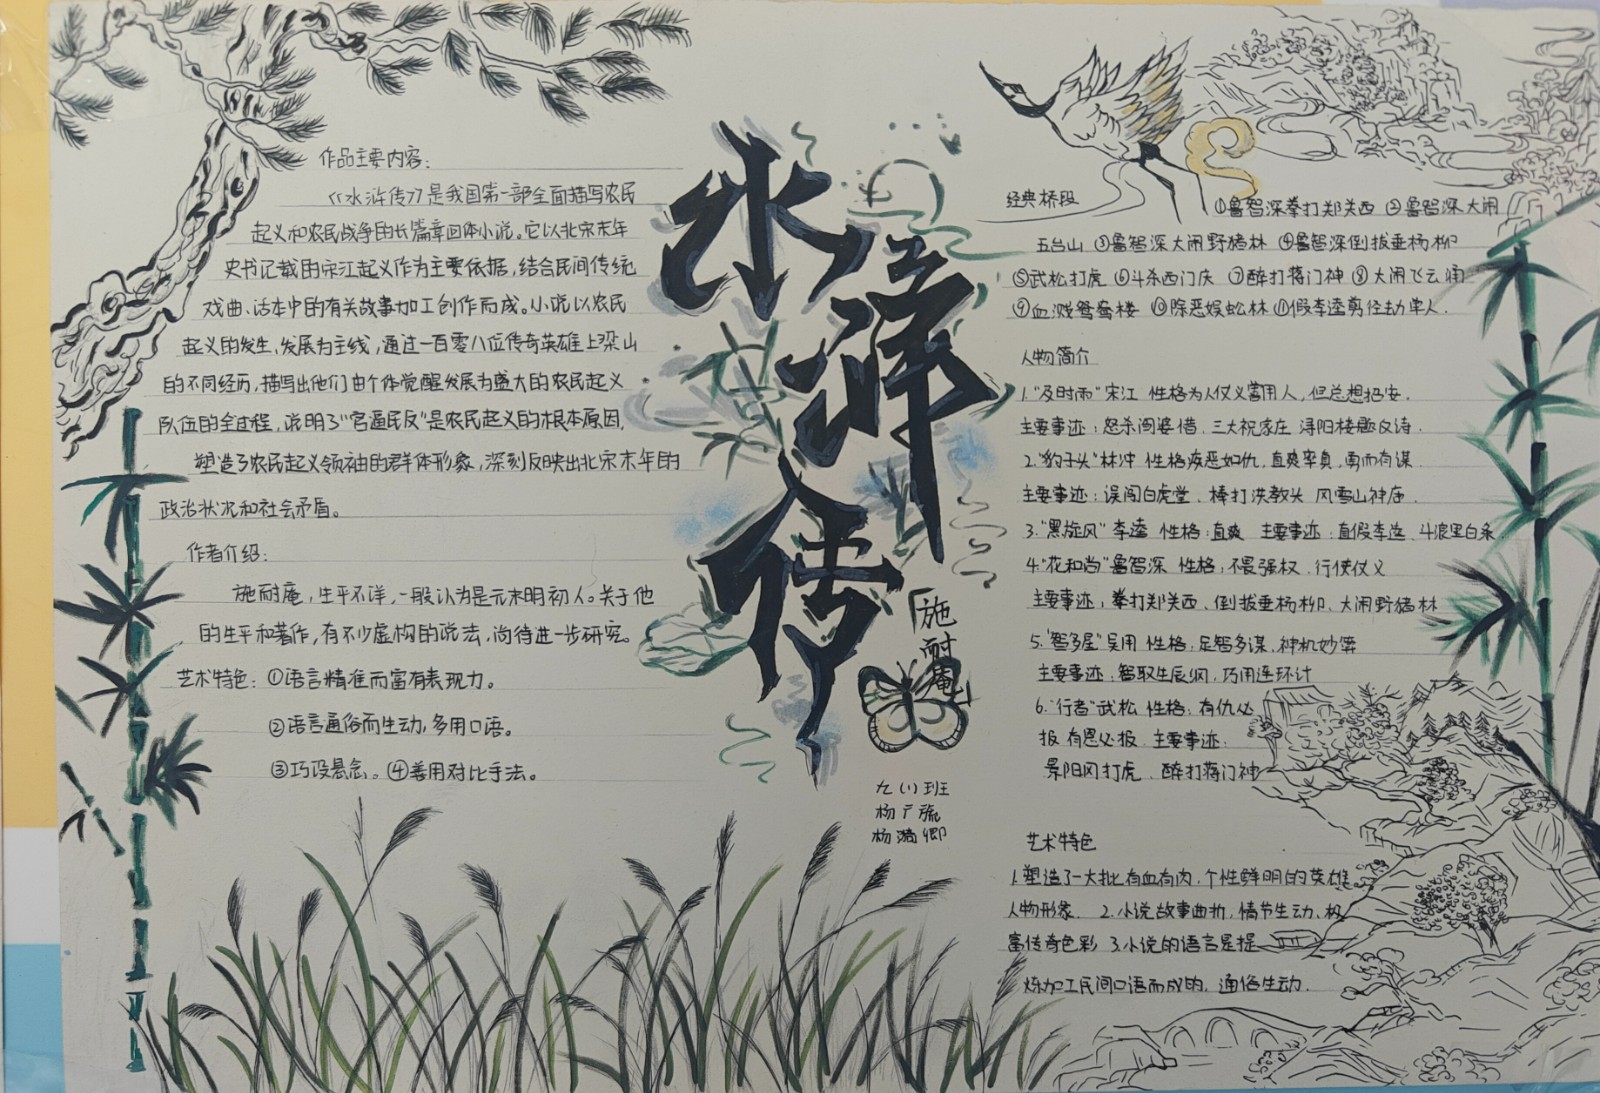 作品主要内容：
《水浒传》是我国第一部全面描写农民
起义和农民战争的长篇章回体小说。它以北宋末年
史书记载的宋江起义作为主要依据，结合民间传统
戏曲、话本中的有关故事加工创作而成。小说以农民
起义的发生、发展为主线，通过一百零八位传奇英雄上梁山
的不同经历，描写出他们由个体觉醒发展为盛大的农民起义
队伍的全过程，说明了“官逼民反”是农民起义的根本原因，
塑造了农民起义领袖的群体形象，深刻反映出北宋末年的
政治状况和社会矛盾。
作者介绍：
施耐庵，生平不详，一般认为是元末明初人。关于他
的生平和著作，有不少虚构的说法，尚待进一步研究。
艺术特色：①语言精准而富有表现力。
②语言通俗而生动，多用口语。
③巧设悬念。④善用对比手法。
水浒传
「施耐庵」
九(1)班
杨广
杨 卿
经典桥段
①鲁智深拳打郑关西 ②鲁智深大闹
五台山 ③鲁智深大闹野猪林 ④鲁智深倒拔垂杨柳
⑤武松打虎 ⑥斗杀西门庆 ⑦醉打蒋门神 ⑧大闹飞云浦
⑨血溅鸳鸯楼 ⑩除恶蜈蚣林 ⑪假李逵剪径劫单人.
人物简介
1.“及时雨”宋江 性格为人仗义善用人，但总想招安.
主要事迹：怒杀阎婆惜、三大祝家庄 浔阳楼题反诗.
2.“豹子头”林冲 性格疾恶如仇，直爽率真，勇而有谋.
主要事迹：误闯白虎堂、棒打洪教头 风雪山神庙.
3.“黑旋风”李逵 性格：直爽 主要事迹：真假李逵、斗浪里白条.
4.“花和尚”鲁智深 性格：不畏强权、行侠仗义
主要事迹：拳打郑关西、倒拔垂杨柳、大闹野猪林
5.“智多星”吴用 性格：足智多谋、神机妙算
主要事迹：智取生辰纲、巧用连环计
6.“行者”武松 性格：有仇必
报 有恩必报、主要事迹：
景阳冈打虎、醉打蒋门神
艺术特色
1.塑造了一大批有血有肉，个性鲜明的英雄
人物形象. 2.小说故事曲折，情节生动、极
富传奇色彩 3.小说的语言是提
炼加工民间口语而成的，通俗生动.